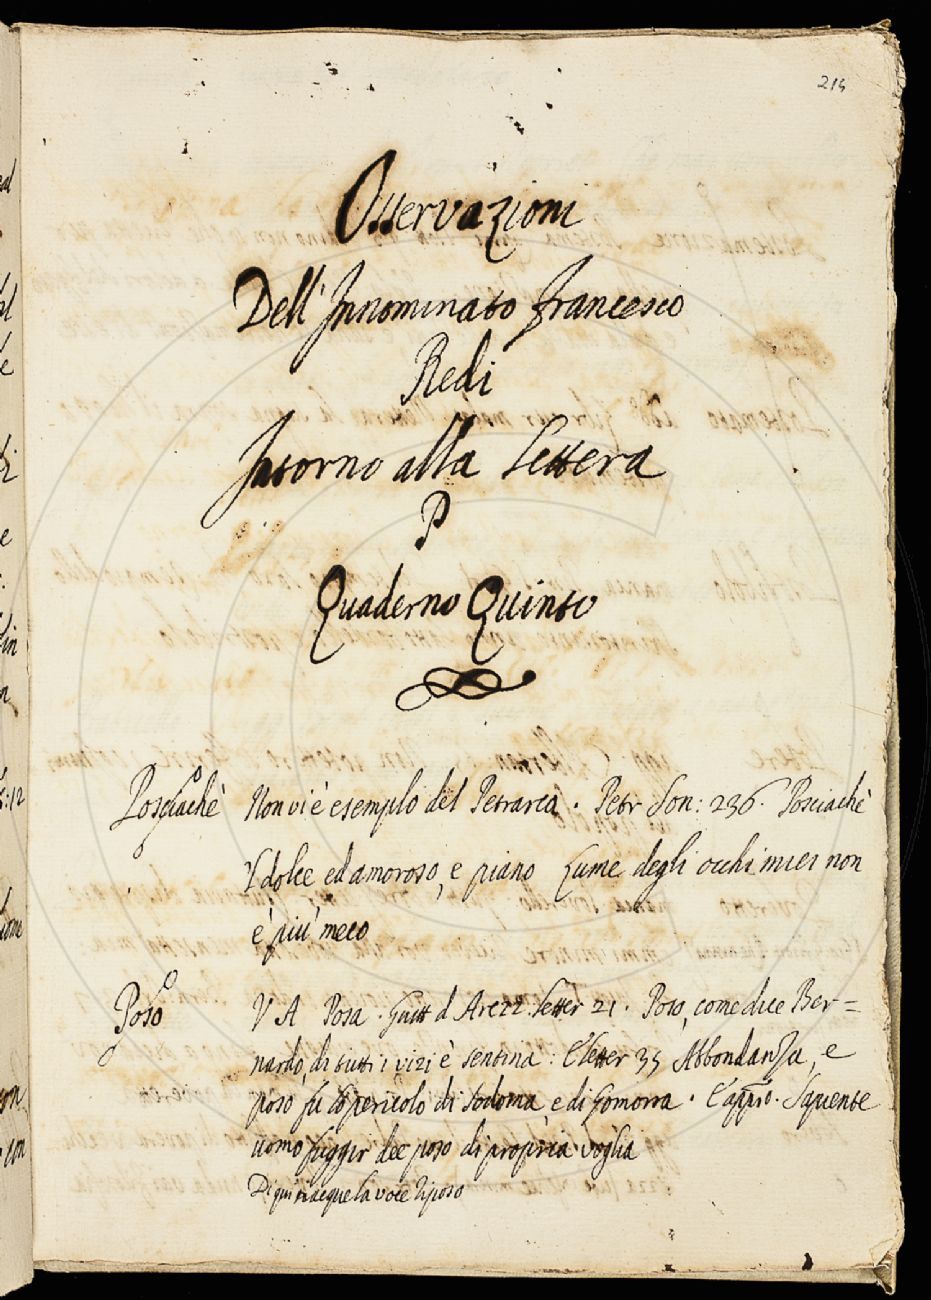 214
Osservazioni
Dell'Innominato Francesco
Redi
Intorno alla Lettera
P
Quaderno Quinto
Posciachè Non vi è esempio del Petrarca. Petr Son: 236. Posciachè
'l dolce ed amoroso, e piano Lume degli occhi miei non
è più meco
Poso V A Posa. Guitt d Arezz. Letter 21. Poso, come dice Ber=
nardo, di tutti i vizi è sentina: E letter 35 Abbondanza, e
poso fu pericolo di Sodoma, e di Gomorra. E app.so. Sapiente
uomo fuggir dee poso di propria voglia
Di qui nacque la voce riposo